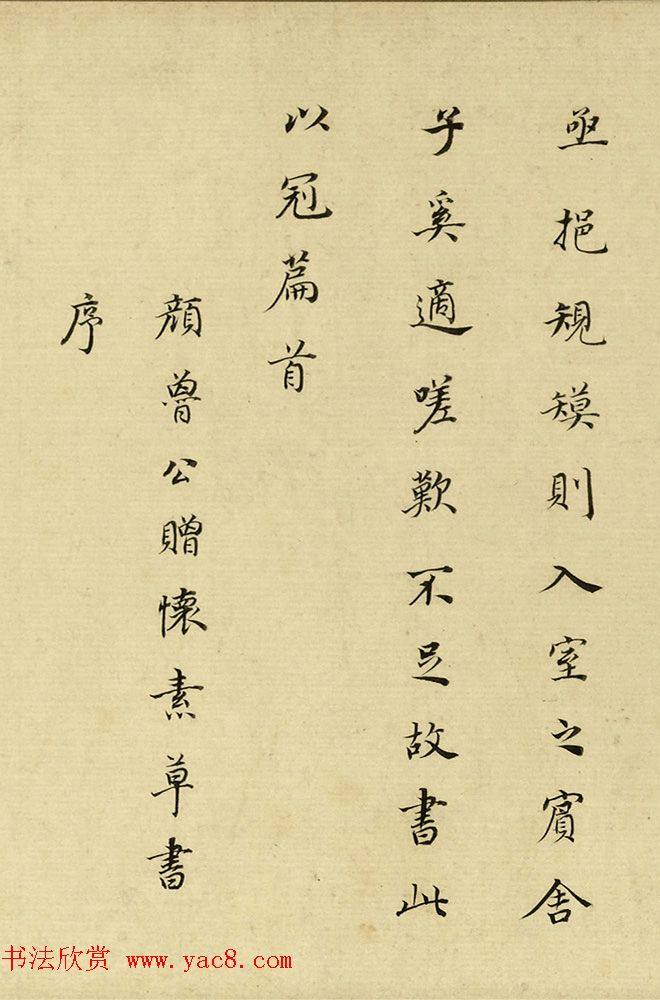 亟挹規模則入室之賓舍
子奚適嗟歎不足故書此
以冠篇首
顔魯公贈懷素草書
序
书法欣赏 www.yac8.com